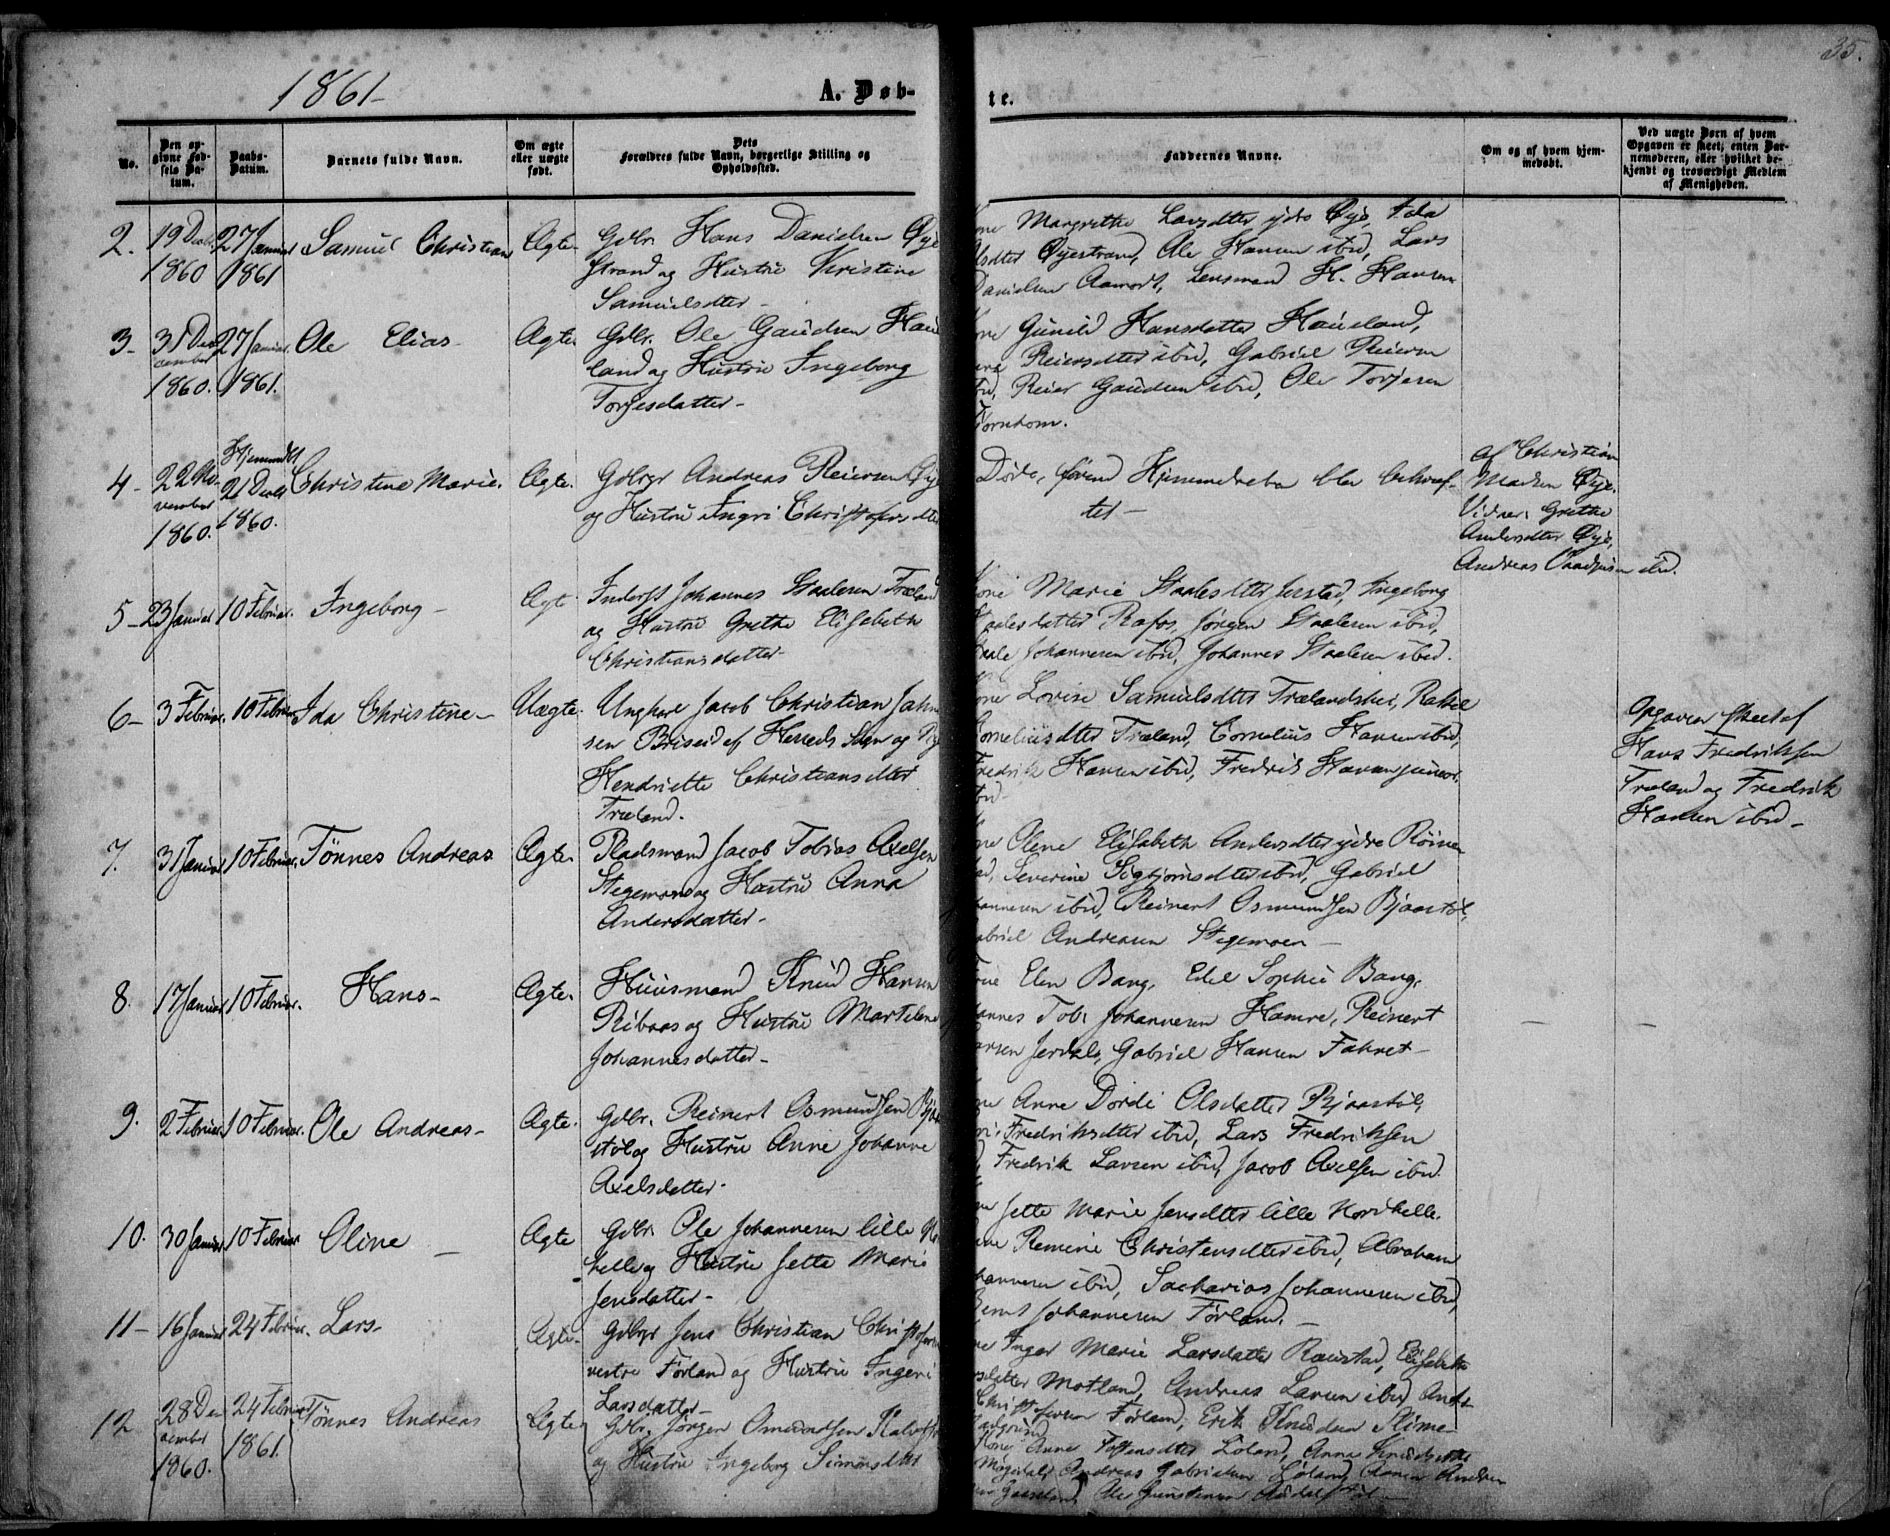 35.
1861-
A. Døb-
te.
No.
Den op-
givne Fød-
sels Da-
tum.
Daabs-
Datum.
Barnets fulde Navn.
Om ægte
eller uægte
født.
Dets
Forældres fulde Navn, borgerlige Stilling og
Opholdssted.
Faddernes Navne.
Om og af hvem hjem-
medøbt.
Ved uægte Børn af hvem
Opgaven er skeet, enten Bar-
nemoderen, eller hvilket be-
kjendt og troværdigt Medlem
af Menigheden.
2. 19 Decbr 1860 27 Januar 1861 Samuel Christian Ægte.
Gdbr. Hans Danielsen Øye
strand og Hustru Kristine
Samuelsdtter -
Kone Margrethe Larsdtter ydre Øye, Ida
Øyestrand, Ole Hansen ibid, Lars
Danielsen Aamodt, Lensmand H. Hansen
3- 31 December 1860. 27 Januar. 1861. Ole Elias Ægte.
Gdbr. Ole Gaudsen Hau
land og Hustru Ingeborg
Torjesdatter -
Kone Gunild Hansdatter Haugland,
Reiersdtter ibid, Gabriel Reiersen
ibid, Reier Gaudsen ibid, Ole Torjesen
Torndom.
4- 22 November 1860. Hjemmedøbt 21 Decbr 1860. Christine Marie. Ægte.
Gdbgr Andreas Reiersen Øye
og Hustru Ingri Christofersdtter
Døde, førend Hjemmedaaben blev bekræf-
tet -
af Christian
Madsen Øye.
Vidner: Grethe
Andersdtter Øye,
Andreas ibid.
5- 23 Januar 10 Februar. Ingeborg - Ægte
Inderst Johannes Staalesen Træland
og Hustru Grethe Elisabeth
Christiansdatter -
Kone Marie Staalesdtter Jerstad, Ingeborg
Staalesdatter Rafos, Jørgen Staalesen ibid,
Staale Johannesen ibid, Johannes Staalesen ibid.
6- 3 Februar. 10 Februar Ida Christine - Uægte.
Ungkarl Jacob Christian Jahn
sen Briseid af Herreds Sogn og Pige
Hendriette Christiansdtter
Træland.
Kone Lovise Samuelsdtter Trælandshei, Rakel
Corneliusdtter Træland, Cornelius Hansen ibid,
Fredrik Hansen ibid, Fredrik Hansen junior
ibid -
Opgaven skeet af
Hans Fredriksen
Træland og Fredrik
Hansen ibid -
7. 31 Januar 10 Februar. Tønnes Andreas Ægte.
Pladsmand Jacob Tobias Axelsen
Stegemoen og Hustru Anna
Andersdatter -
Kone Olene Elisabeth Andersdtter ydre Røinestad,
Severine Sigbjørnsdtter ibid, Gabriel
Johannesen ibid, Reinert Osmundsen Bjaastøl,
Gabriel Andreasen Stegemoen -
8. 17 Januar 10 Februar. Hans - Ægte.
Huusmand Knud Hansen
Ribaas og Hustru Marte Lene
Johannesdatter -
Frue Elen Bang, Edel Sophie Bang,
Johannes Tob. Johannesen Hamre, Reinert
Larsen Jerdal, Gabriel Hansen Fahret -
9. 2 Februar. 10 Februar. Ole Andreas - Ægte.
Gdbr. Reinert Osmundsen Bjaa
støl og Hustru Anne Johanne
Axelsdatter -
Kone Anne Dorde Olsdatter Bjaastøl,
Fredriksdtter ibid, Lars Fredriksen
Fredrik Larsen ibid, Jacob Axelsen ibid.
10. 30 Januar 10 Februar Oline - Ægte
Gdbr. Ole Johannesen lille No
helle og Hustru Jette Marie
Jensdatter -
Kone Jette Marie Jensdtter lille Nordhelle.
Remine Christensdtter ibid, Abraham
Johannesen ibid, Sacharias Johannesen ibid,
Bernt Johannesen Førland. -
11- 16 Januar 24 Februar. Lars - Ægte.
Gdbgr Jens Christian Christofersen
vestre Førland og Hustru Ingeri
Larsdatter -
Kone Inger Marie Larsdatter Raustad, Elisabeth
Larsdatter Motland, Andreas Larsen ibid
Christofersen Førland, Erik Knudsen
12 28 December 1860. 24 Februar 1861. Tønnes Andreas Ægte
Gdbr. Jørgen Omundsen
og Hustru Ingeborg Simonsdtter
Kone Anne Løland, Anna Knudsdtter
Andreas Gabrielsen Løland